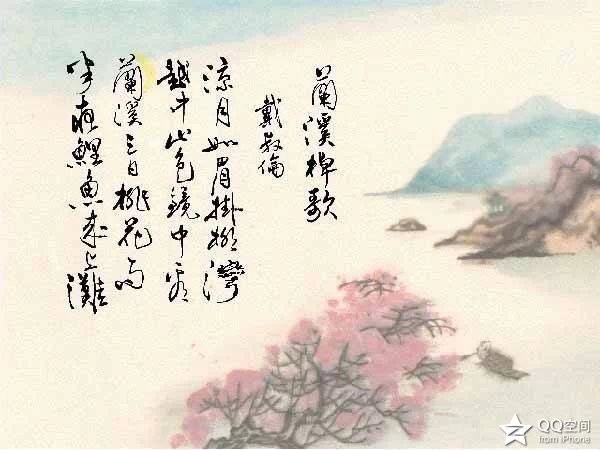 蘭溪棹歌
戴叔倫
涼月如眉掛柳灣
越中山色鏡中看
蘭溪三日桃花雨
半夜鯉魚來上灘
QQ空间
from iPhone